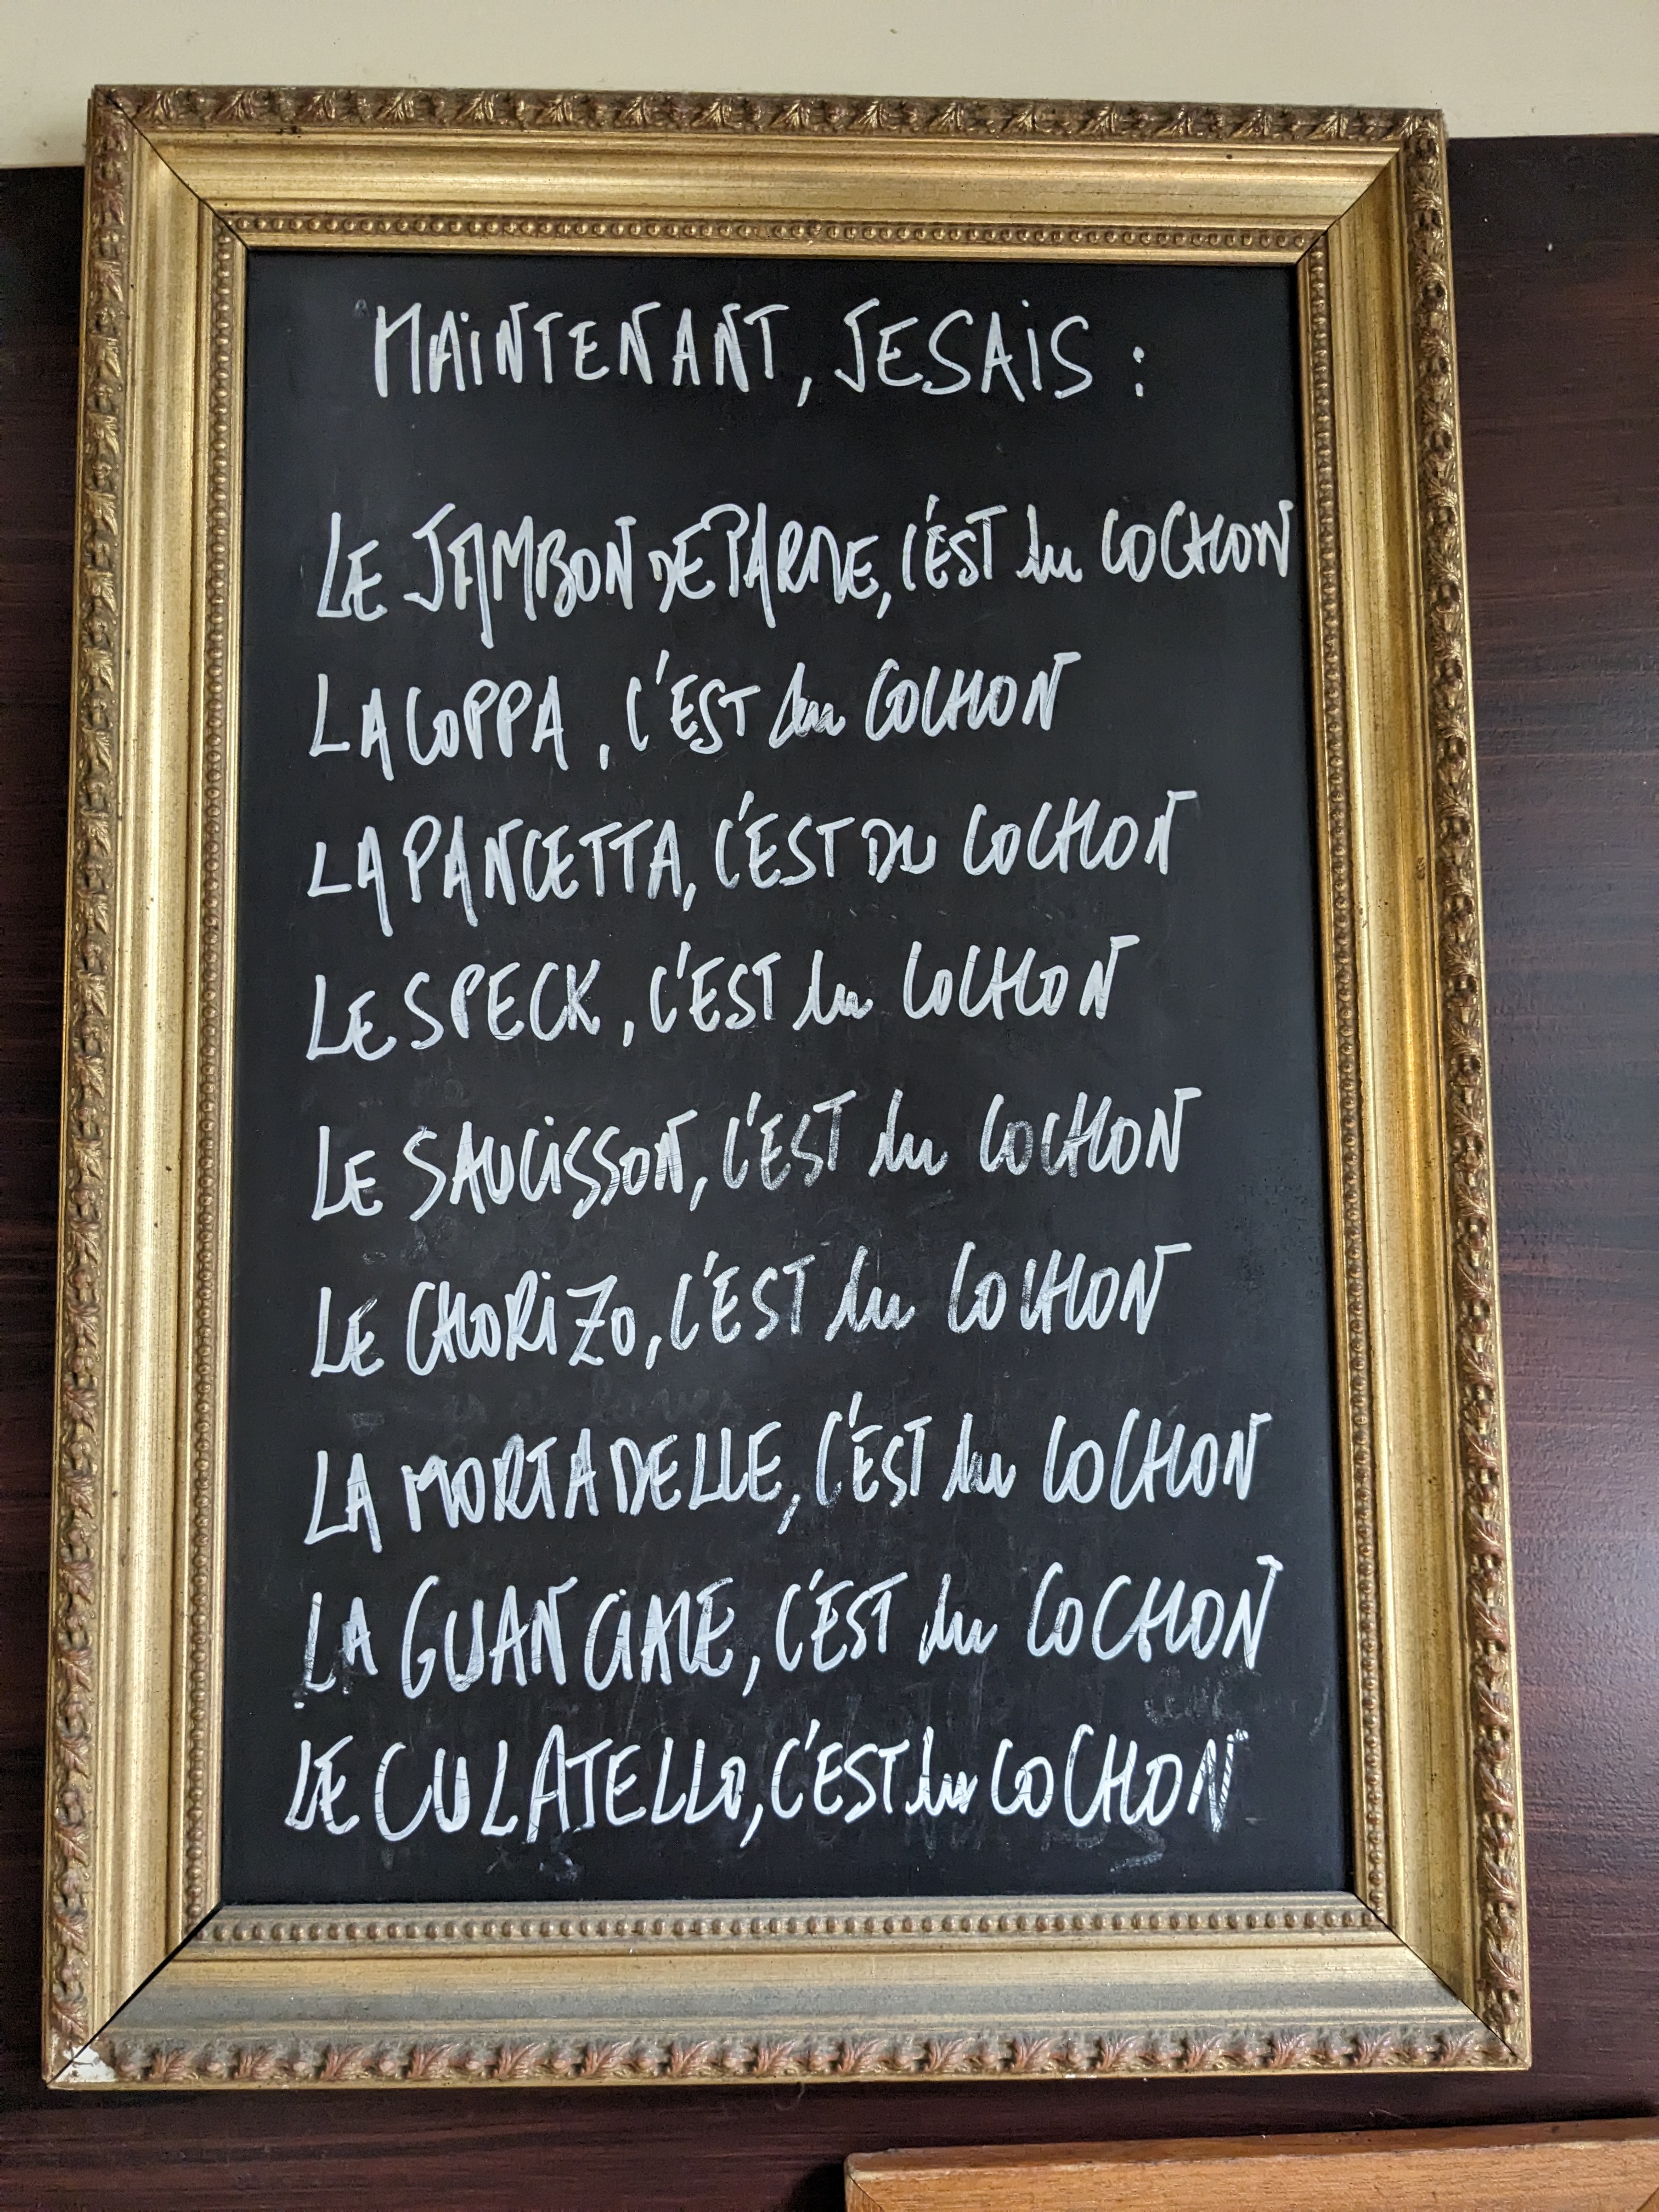 MAINTENANT, JE SAIS :
LE JAMBON DE PARME, C'EST du COCHON
LA COPPA, C'EST du COCHON
LA PANCETTA, C'EST DU COCHON
LE SPECK, C'EST du COCHON
LE SAUCISSON, C'EST du COCHON
LE CHORIZO, C'EST du COCHON
LA MORTADELLE, C'EST du COCHON
LA GUANCIALE, C'EST du COCHON
LE CULATELLO, C'EST du COCHON